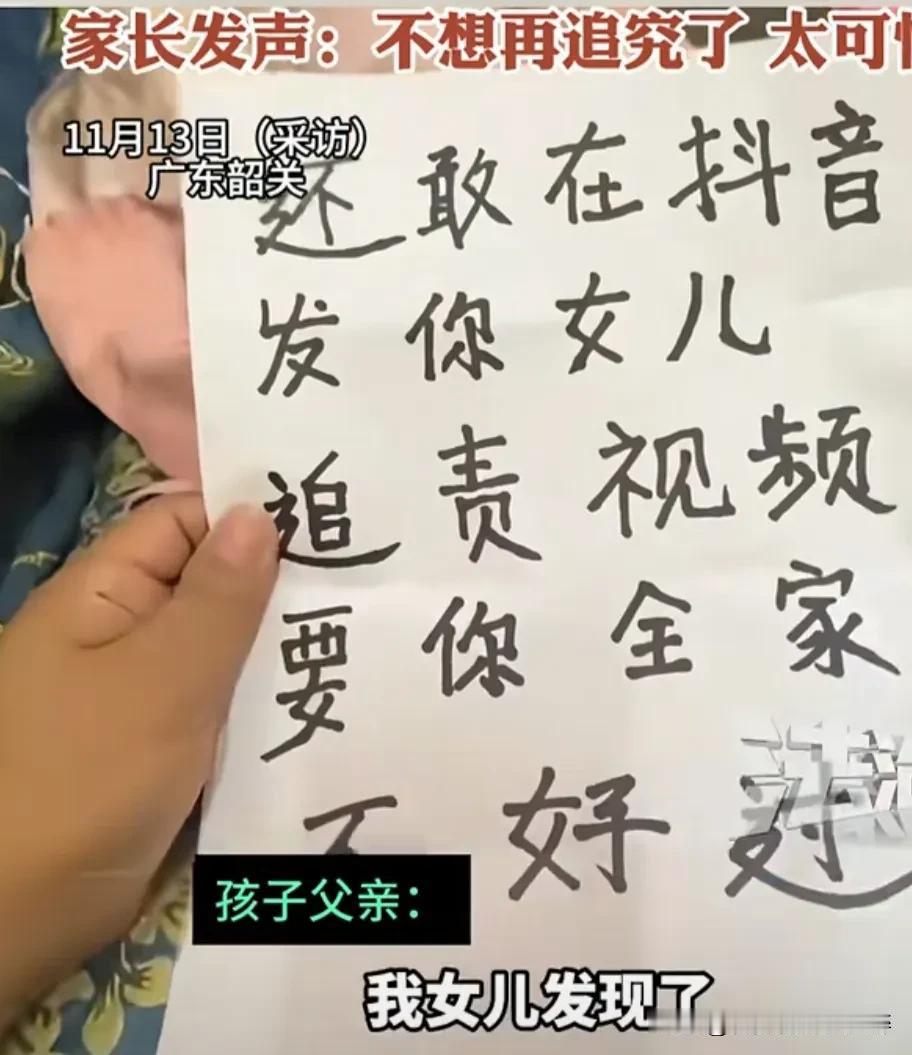 家长发声：不想再追究了 太可
11月13日（采访）
广东韶关
还敢在抖音
发你女儿
追责视频
要你全家
不好过
孩子父亲：
我女儿发现了